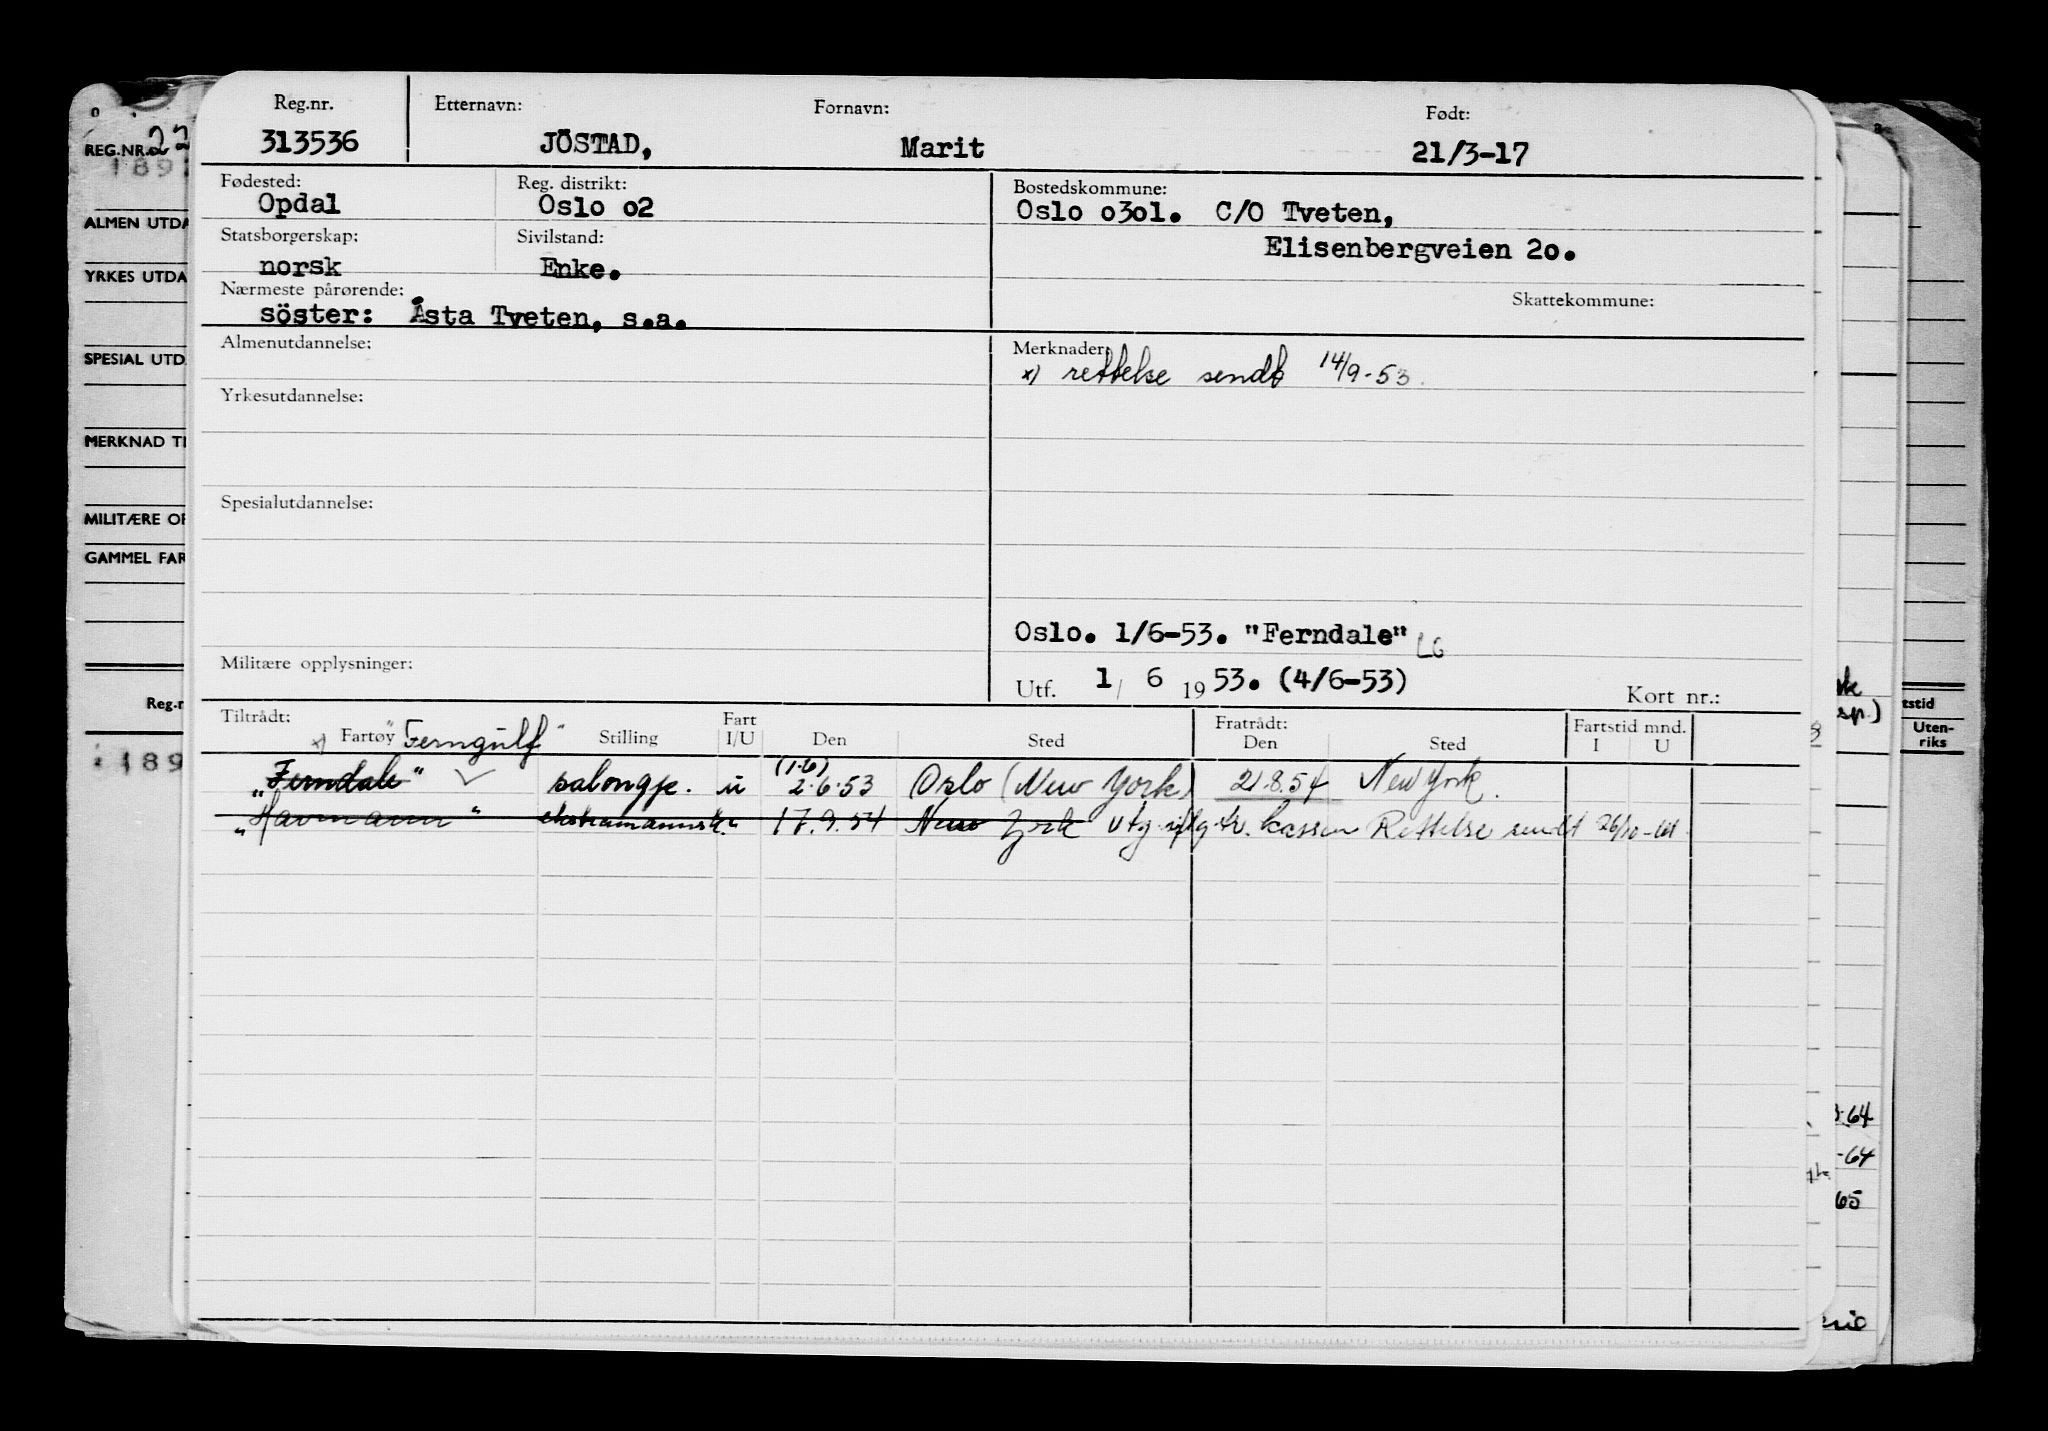 Reg.nr. Etternavn: Fornavn: Født:
313536 JÖSTAD, Marit 21/3-17
Fødested: Reg. distrikt: Bostedskommune:
Opdal Oslo o2 Oslo o3o1. C/O Tveten,
Statsborgerskap: Sivilstand: Elisenbergveien 2o.
norsk Enke.
Nærmeste pårørende: Skattekommune:
söster: Åsta Tveten, s.a.
Almenutdannelse: Merknader:
x) rettelse sendt 14/9-53.
Yrkesutdannelse:
Spesialutdannelse:
Oslo. 1/6-53. "Ferndale" LG
Militære opplysninger:
Utf. 1/ 6 1953. (4/6-53) Kort nr.:
Tiltrådt: Fart Fratrådt: Fartstid mnd.
x) Fartøy "Ferngulf" Stilling I/U Den Sted Den Sted I U
(1.6)
"Ferndale" salongpe. u 2.6.53 Oslo (New York) 21.8.54 New York.
"Havmann" 17.9.54 New York utg. kassen Rettelse sendt 26/10
REG.NR. 22
189
ALMEN UTDA
YRKES UTDA
SPESIAL UTD
MERKNAD TI
MILITÆRE OP
GAMMEL FAR
Reg.n
189
sp.)
tstid
Uten-
riks
3-64
-64
65